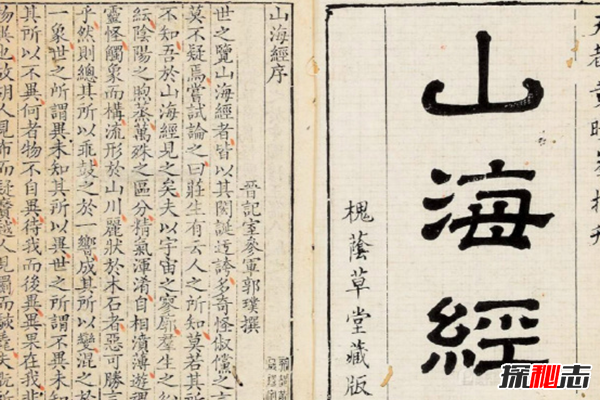 山海經
槐蔭草堂藏版
山海經序
晉記室參軍郭璞撰
世之覽山海經者皆以其閎誕迂誇多奇怪俶儻之言
莫不疑焉嘗試論之曰莊生有云人之所知莫若其所
不知吾於山海經見之矣夫以宇宙之寥廓羣生之
紜陰陽之煦蒸萬殊之區分精氣渾淆自相濆薄遊
靈怪觸象而構流形於山川麗狀於木石者惡可勝言
乎然則總其所以乖鼓之於一響成其所以變混之於
一象世之所謂異未知其所以異世之所謂不異未知
其所以不異何者物不自異待我而後異異果在我非
物異也故胡人見布而疑黂越人見罽而駭毳夫翫所
探秘志